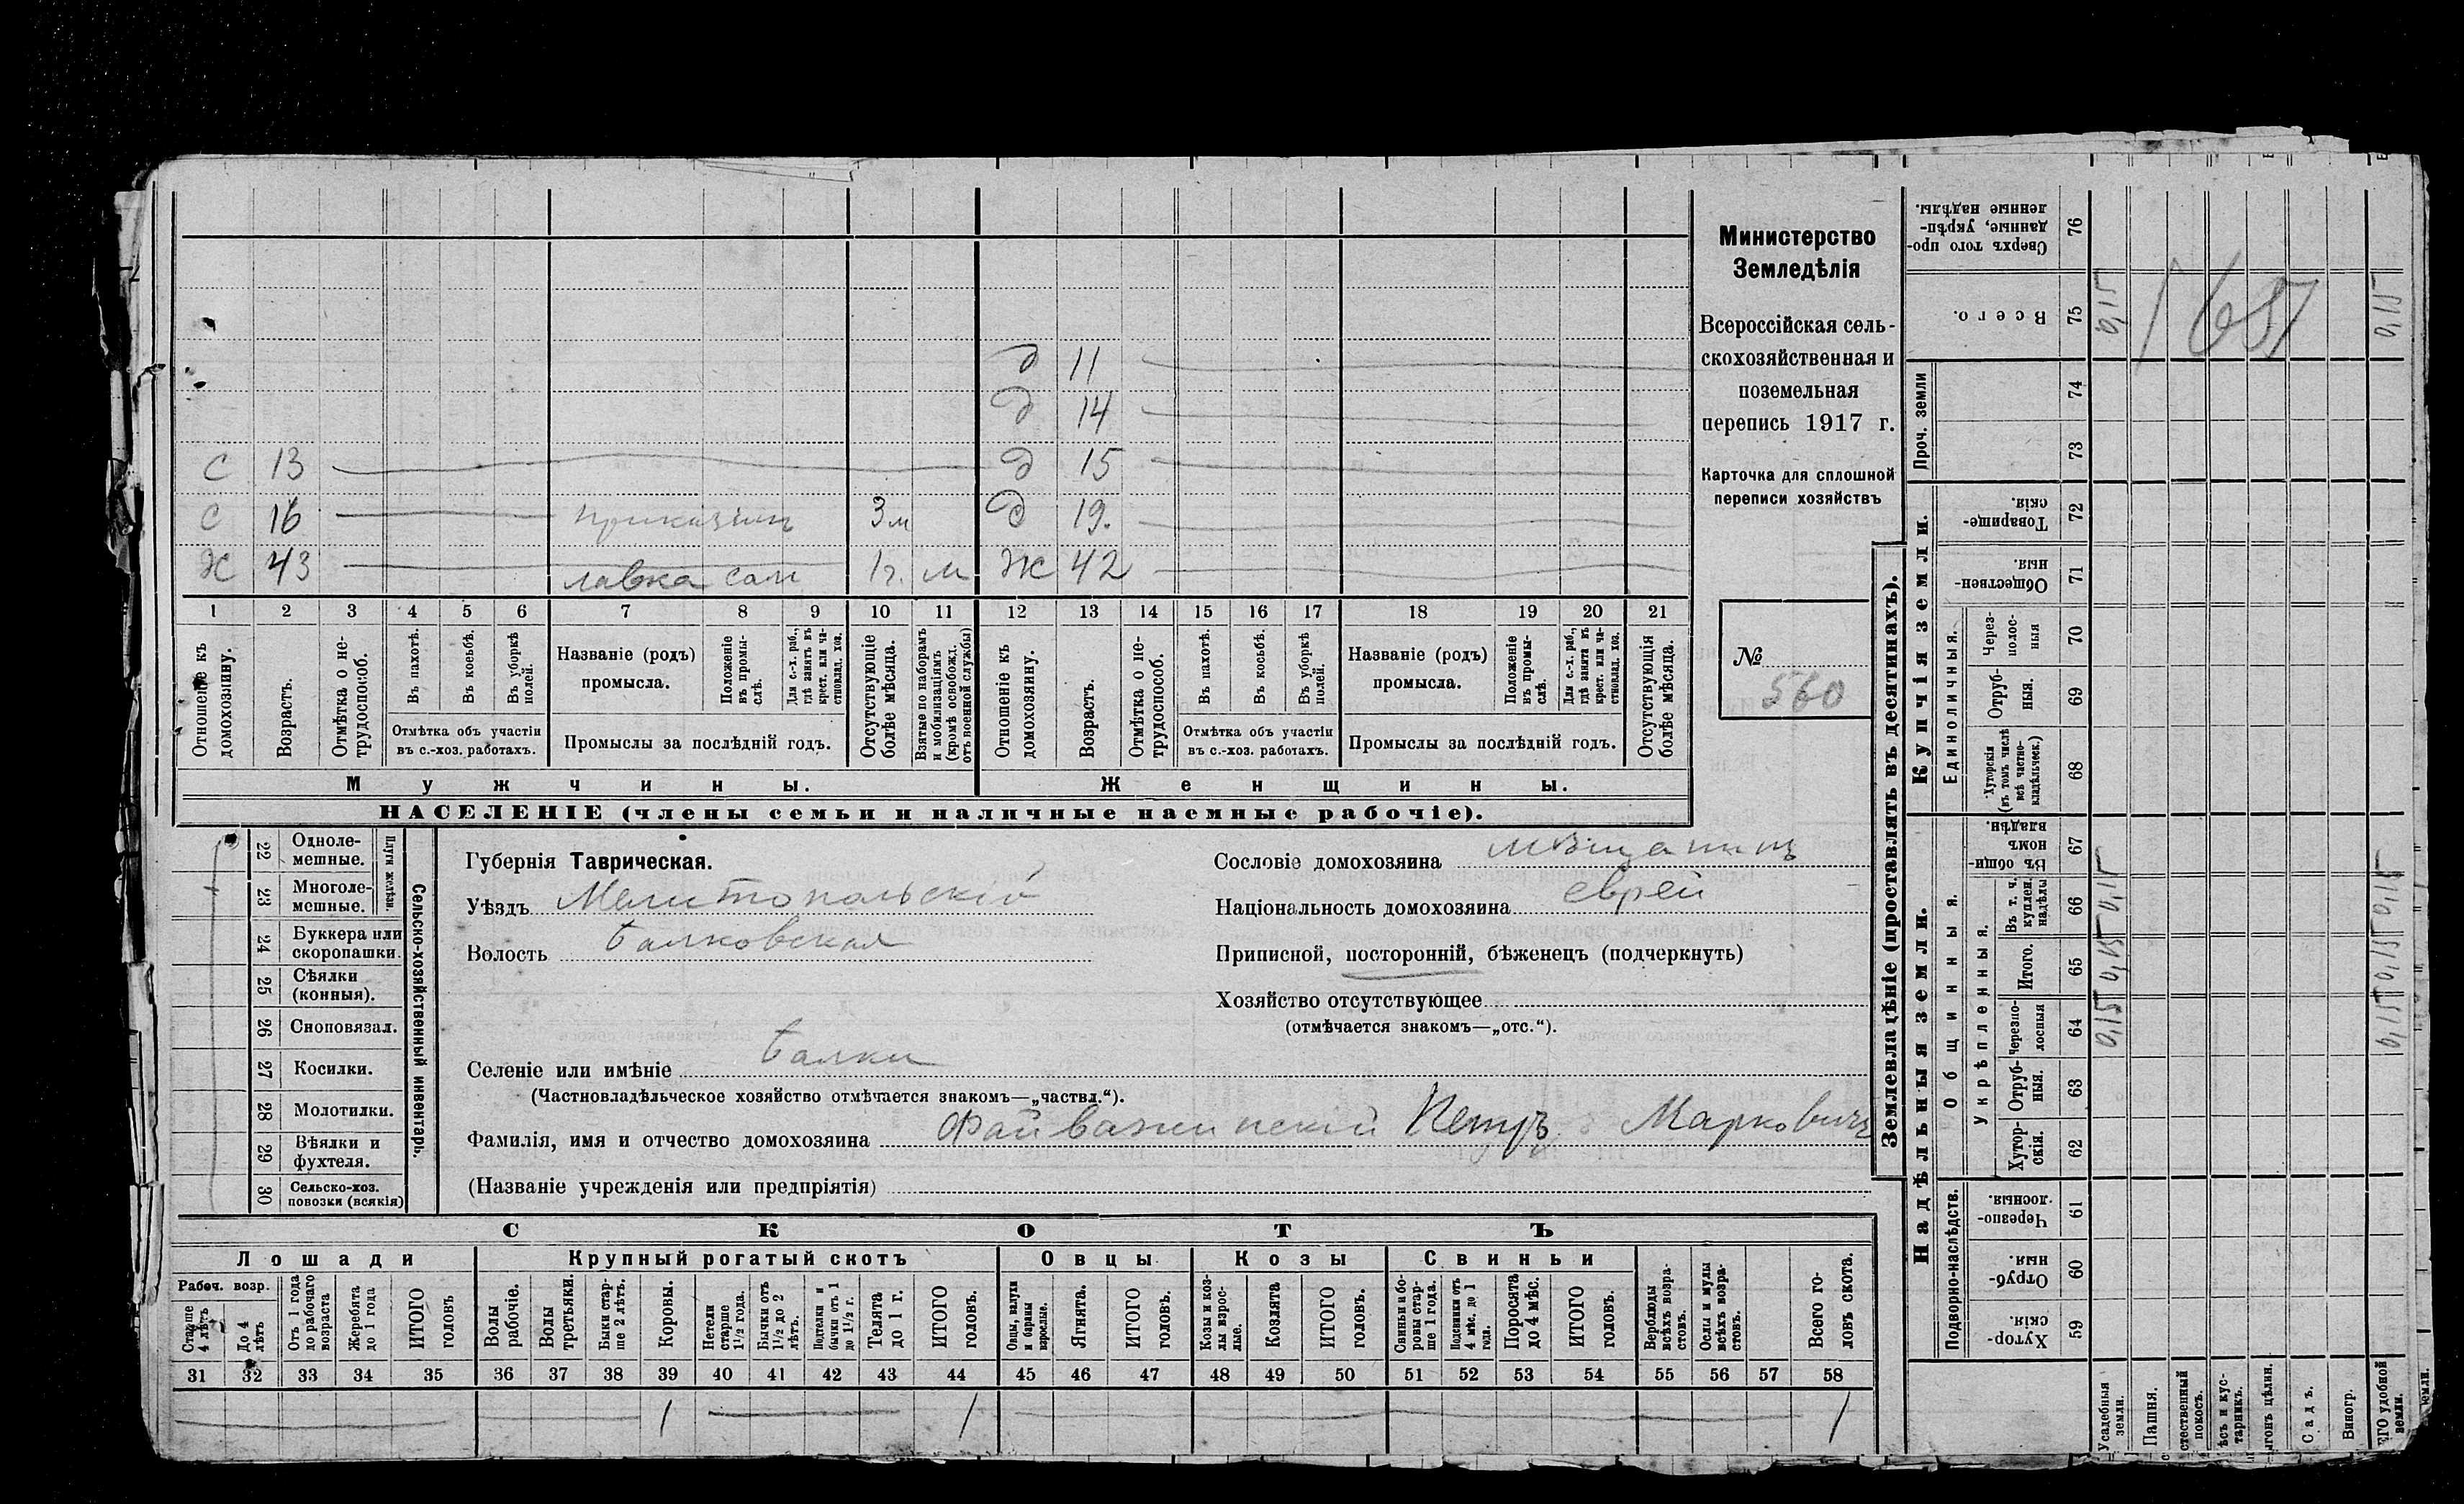 Министерство
Земледѣлія
Всероссійская сель-
скохозяйственная и
поземельная
перепись 1917 г.
Карточка для сплошной
переписи хозяйствъ
№
560
д 11
д 14
с 13 д 15
с 16 3 м д 19.
Ж 43 лавка сам 1 г. м Ж 42
1 2 3 4 5 6 7 8 9 10 11 12 13 14 15 16 17 18 19 20 21
Отношеніе къ домохозяину.
Возрастъ.
Отмѣтка о не-трудоспособ.
Въ пахотѣ.
Въ косьбѣ.
Въ уборкѣ полей.
Отмѣтка объ участіи
въ с.-хоз. работахъ.
Названіе (родъ)
промысла.
Положеніе въ промы-слѣ.
Для с.-х. раб., гдѣ занятъ въ крест. или ча-стновлад. хоз.
Промыслы за послѣдній годъ.
Отсутствующіе болѣе мѣсяца.
Взятые по наборамъ и мобилизаціямъ (кромѣ освобожд. отъ военной службы)
Отношеніе къ домохозяину.
Возрастъ.
Отмѣтка о не-трудоспособ.
Въ пахотѣ.
Въ косьбѣ.
Въ уборкѣ полей.
Отмѣтка объ участіи
въ с.-хоз. работахъ.
Названіе (родъ)
промысла.
Положеніе въ промы-слѣ.
Для с.-х. раб., гдѣ занята въ крест. или ча-стновлад. хоз.
Промыслы за послѣдній годъ.
Отсутствующія болѣе мѣсяца.
Мужчины.
Женщины.
НАСЕЛЕНІЕ (члены семьи и наличные наемные рабочіе).
22 Одноле-мешные.
23 Многоле-мешные.
Плуги желѣзн.
24 Буккера или скоропашки.
25 Сѣялки (конныя).
26 Сноповязал.
27 Косилки.
28 Молотилки.
29 Вѣялки и фухтеля.
30 Сельско-хоз. повозки (всякія)
Сельско-хозяйственный инвентарь.
Губернія Таврическая.
Уѣздъ Мелитопольскій
Волость Балковская
Сословіе домохозяина мѣщанинъ
Національность домохозяина еврей
Приписной, посторонній, бѣженецъ (подчеркнуть)
Хозяйство отсутствующее
(отмѣчается знакомъ—„отс.“).
Селеніе или имѣніе Балки
(Частновладѣльческое хозяйство отмѣчается знакомъ—„частвл.“).
Фамилія, имя и отчество домохозяина Петръ Марковичъ
(Названіе учрежденія или предпріятія)
СКОТЪ
Лошади
Крупный рогатый скотъ
Овцы
Козы
Свиньи
Рабоч. возр.
Старше 4 лѣтъ
До 4 лѣтъ
Отъ 1 года до рабочаго возраста
Жеребята до 1 года
ИТОГО головъ
Волы рабочіе.
Волы третьяки.
Быки стар-ше 2 лѣтъ.
Коровы.
Нетели старше 1½ года.
Бычки отъ 1½ до 2 лѣтъ.
Подтелки и бычки отъ 1 до 1½ г.
Телята до 1 г.
ИТОГО головъ.
Овцы, валухи и бараны взрослые.
Ягнята.
ИТОГО головъ.
Козы и коз-лы взрос-лые.
Козлята
ИТОГО головъ.
Свиньи и бо-ровы стар-ше 1 года.
Подсвинки отъ 4 мѣс. до 1 года.
Поросята до 4 мѣс.
ИТОГО головъ.
Верблюды всѣхъ возра-стовъ.
Ослы и мулы всѣхъ возра-стовъ.
Всего го-ловъ скота.
31 32 33 34 35 36 37 38 39 40 41 42 43 44 45 46 47 48 49 50 51 52 53 54 55 56 57 58
1 1 1
Землевладѣніе (проставлять въ десятинахъ).
Надѣльныя земли.
Купчія земли.
Проч. земли
Подворно-наслѣдств.
Общинныя.
Укрѣпленныя.
Единоличныя.
Хутор-скія. 59
Отруб-ныя. 60
Черезпо-лосныя. 61
Хутор-скія. 62
Отруб-ныя. 63
Черезпо-лосныя 64
Итого. 65
Въ т. ч. куплен. надѣлы 66
Въ общин-номъ владѣн. 67
Хуторскія (въ томъ числѣ всѣ частно-владѣльческ.) 68
Отруб-ныя. 69
Через-полос-ныя 70
Обществен-ныя. 71
Товарище-скія. 72
73
74
Всего. 75
Сверхъ того про-данные, укрѣп-ленные надѣлы. 76
Усадебныя земли. 0,15 0,15 0,15 0,15
Пашня.
стественный покосъ.
ѣсъ и кус-тарникъ.
ыгонъ цѣлин.
Садъ.
Виногр.
ЕГО удобной земли. 0,15 0,15 0,15 0,15
земли.